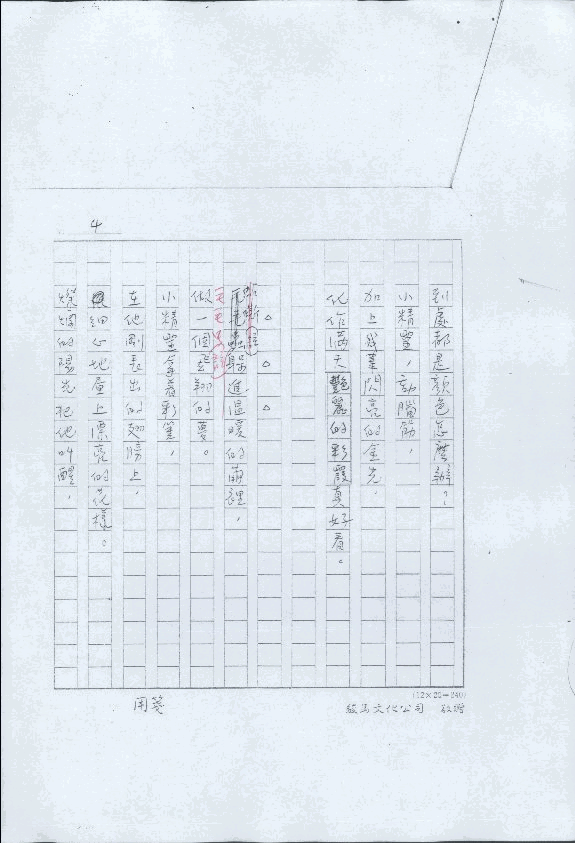 4
到處都是顏色怎麼辦？
小精靈，動腦筋，
加上幾筆閃亮的金光，
化作滿天艷麗的彩霞真好看。
毛毛蟲躲進溫暖的繭裡，
做一個飛翔的夢。
小精靈拿著彩筆，
在他剛長出的翅膀上，
細心地畫上漂亮的花樣。
燦爛的陽光把他叫醒，
(12×20=240)
駿馬文化公司 敬贈
用箋